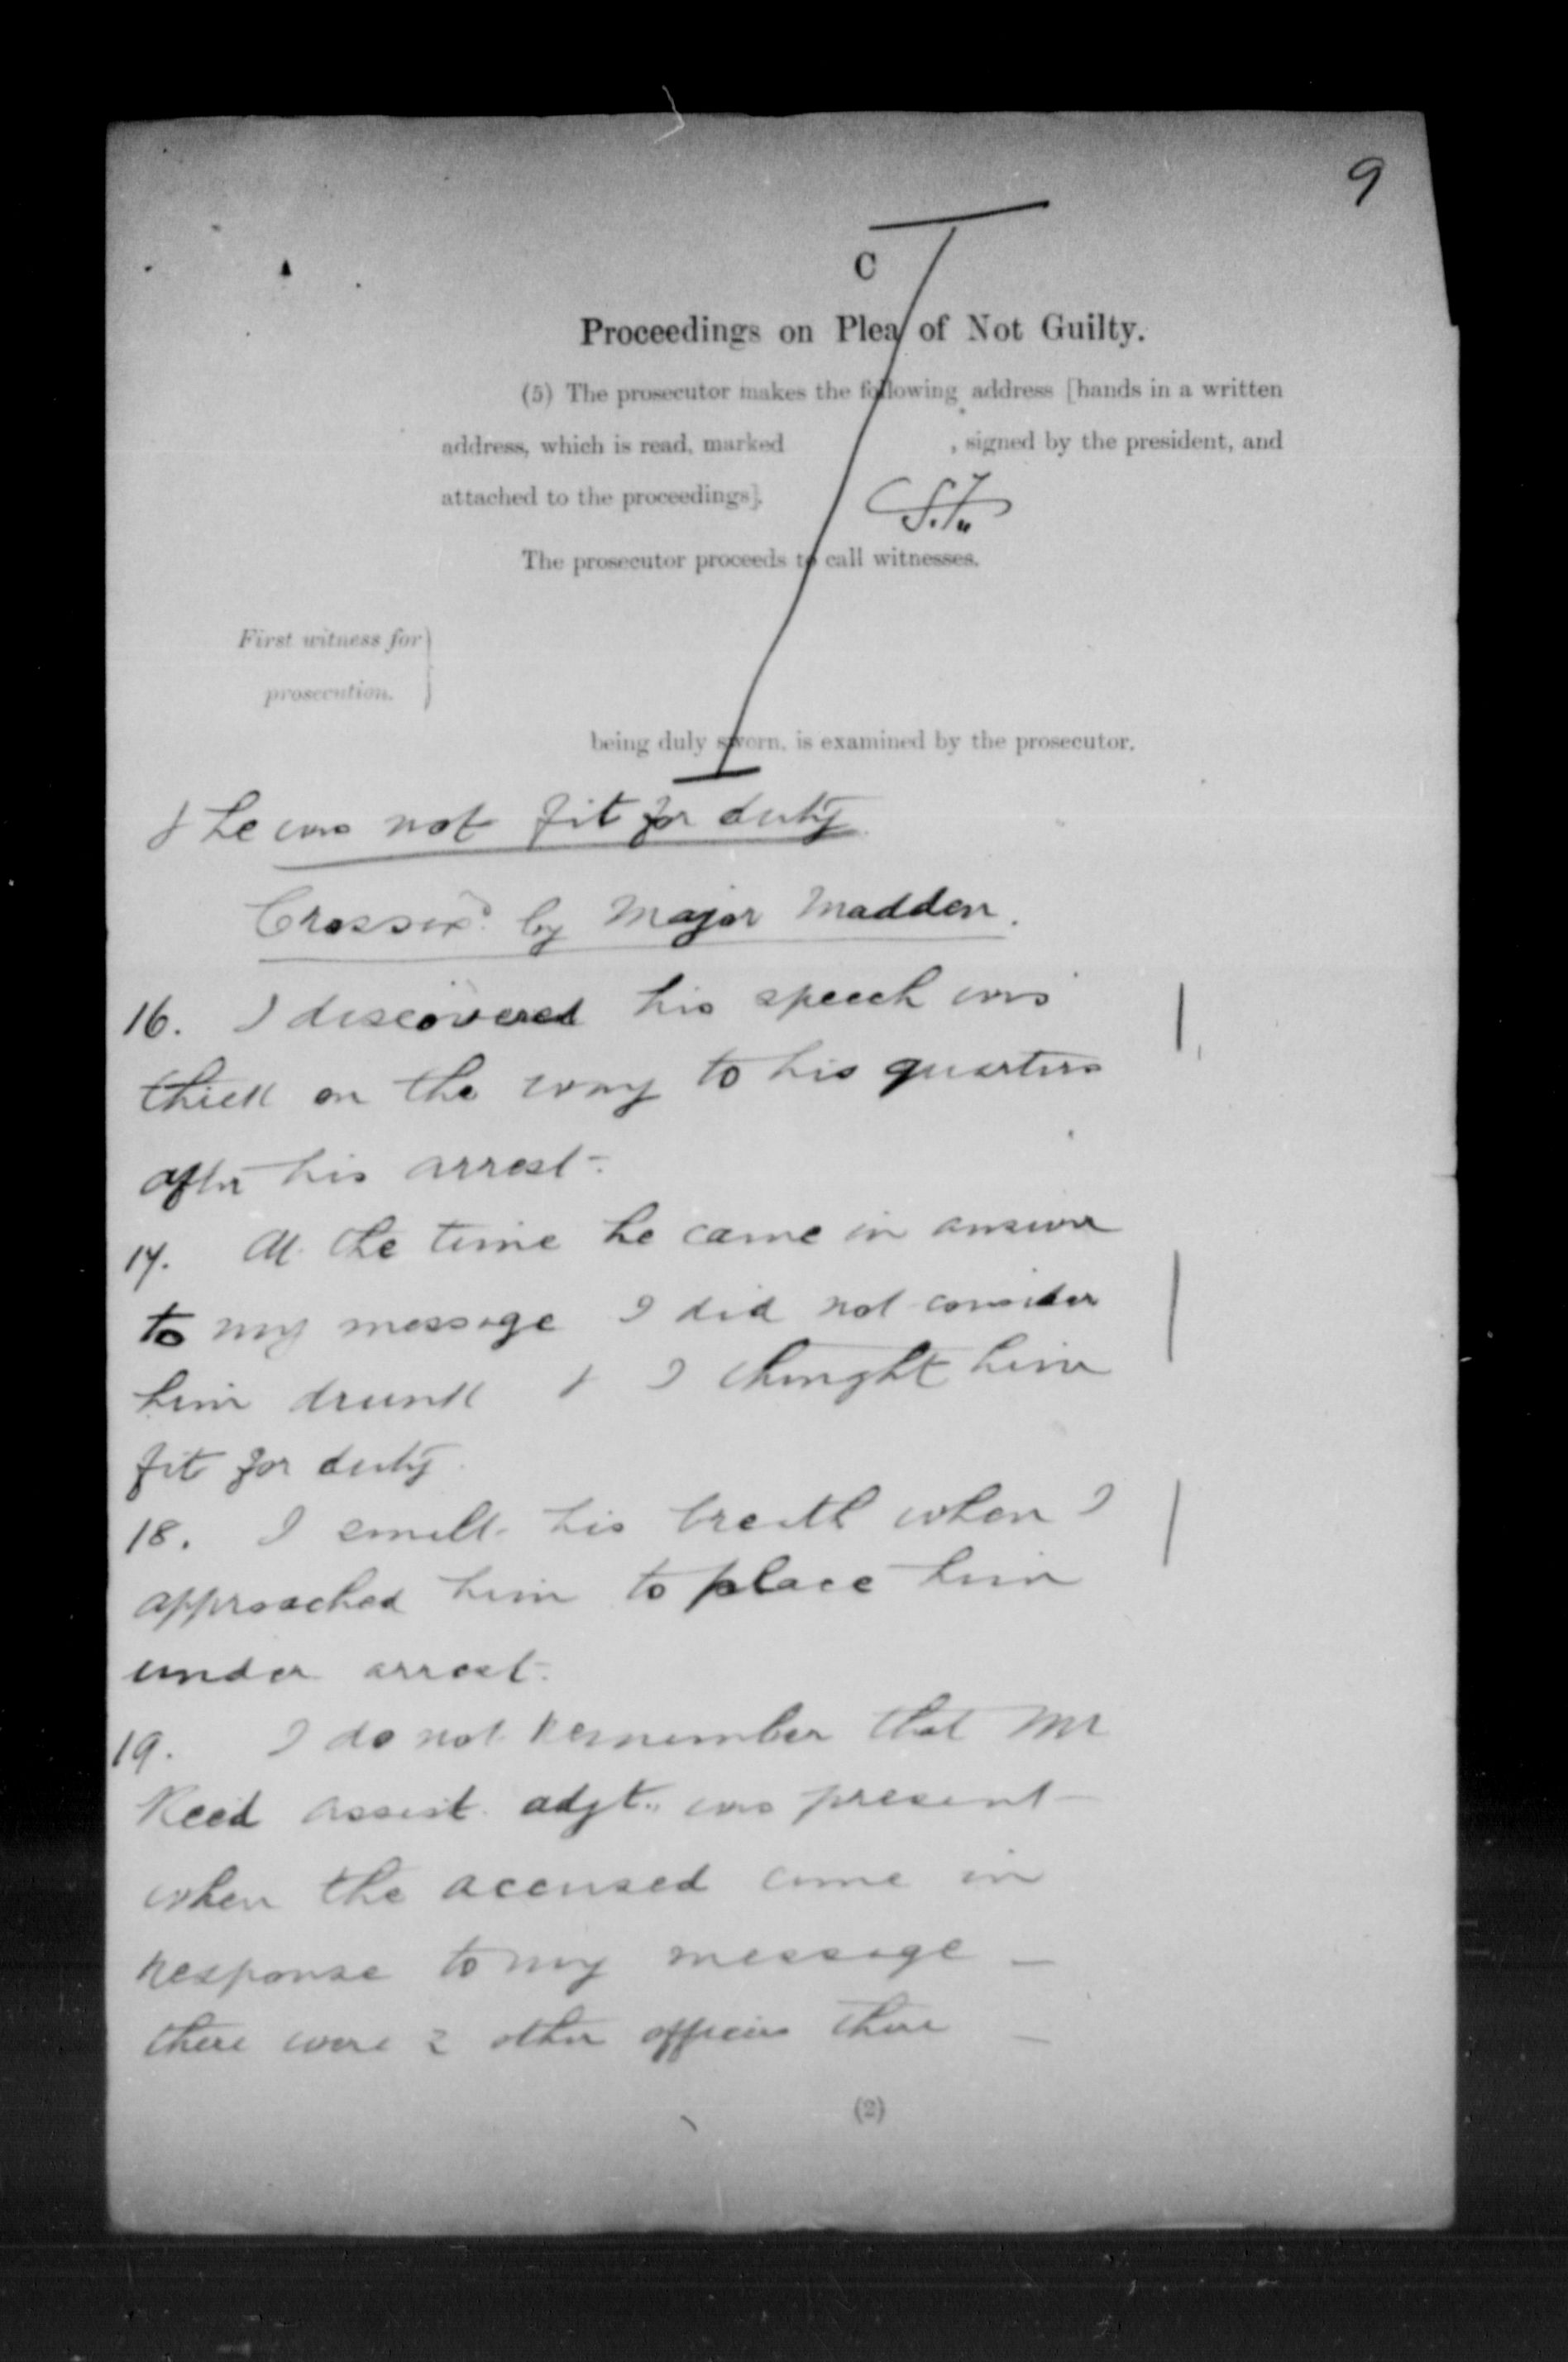 9
C
Proceedings on Plea of Not Guilty.
(5) The prosecutor makes the following address [hands in a written
address, which is read, marked , signed by the president, and
attached to the proceedings].
The prosecutor proceeds to call witnesses.
First witness for
prosecution.
being duly sworn, is examined by the prosecutor.
& he was not fit for duty
Crossexd. by Major Madden.
16. I discovered his speech was
thick on the way to his quarters
after his arrest.
17. At the time he came in answer
to my message I did not consider
him drunk & I thought him
fit for duty.
18. I smelt his breath when I
approached him to place him
under arrest.
19. I do not remember that Mr
Reed assist. adjt. was present
when the accused came in
response to my message —
there were 2 other officers there —
(2)